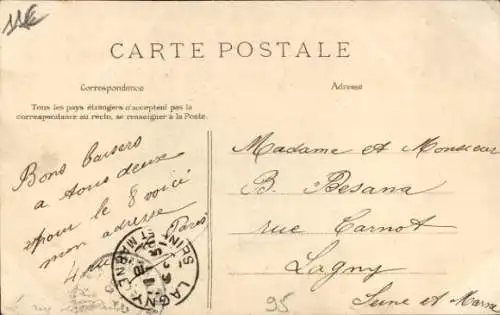 CARTE POSTALE
Correspondance
Adresse
Tous les pays étrangers n'acceptent pas la
correspondance au recto, se renseigner à la Poste.
Bons baisers
a tous deux
pour le 8 voici
mon adresse
Paris
Madame et Monsieur
B. Besana
rue Carnot
Lagny
Seine et Marne
LAGNY
95